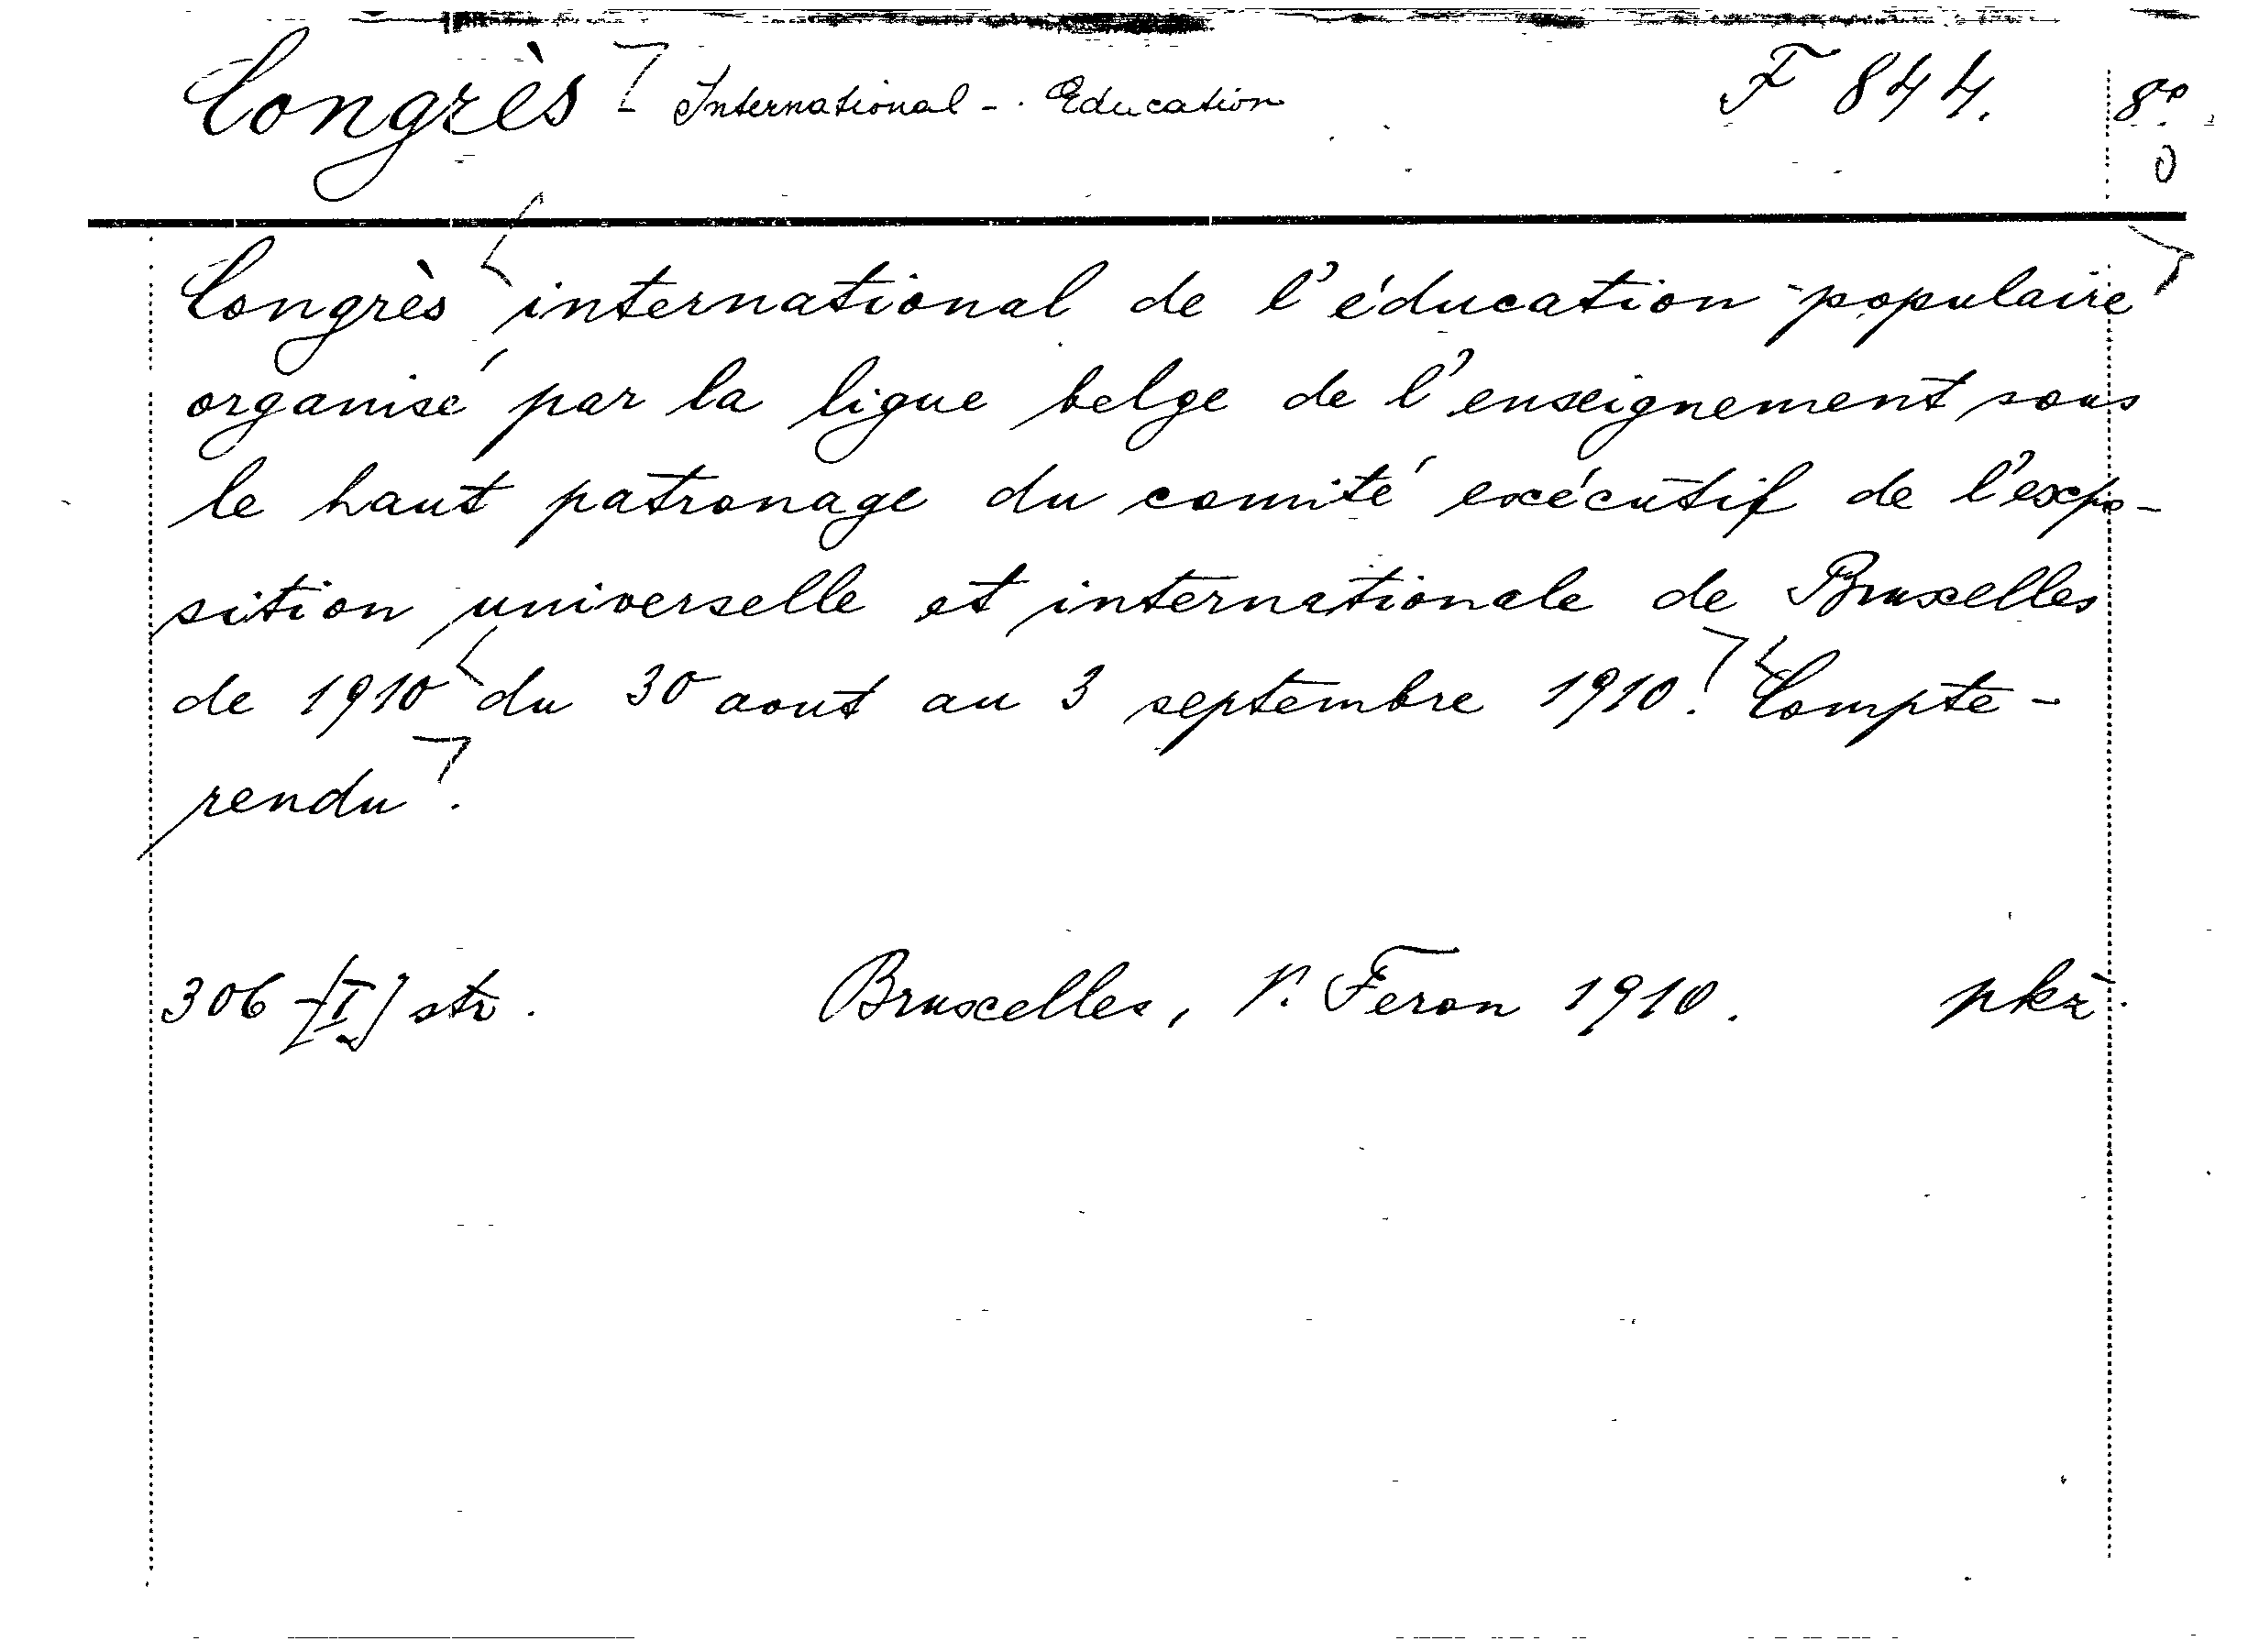 Congrès International - Education F 844. 8°
0
Congrès international de l'éducation populaire
organisé par la ligue belge de l'enseignement sous
le haut patronage du comité exécutif de l'expo-
sition universelle et internationale de Bruxelles
de 1910 du 30 aout au 3 septembre 1910. Compte-
rendu.
306 [I] str. Bruxelles, V. Feron 1910. pkž.